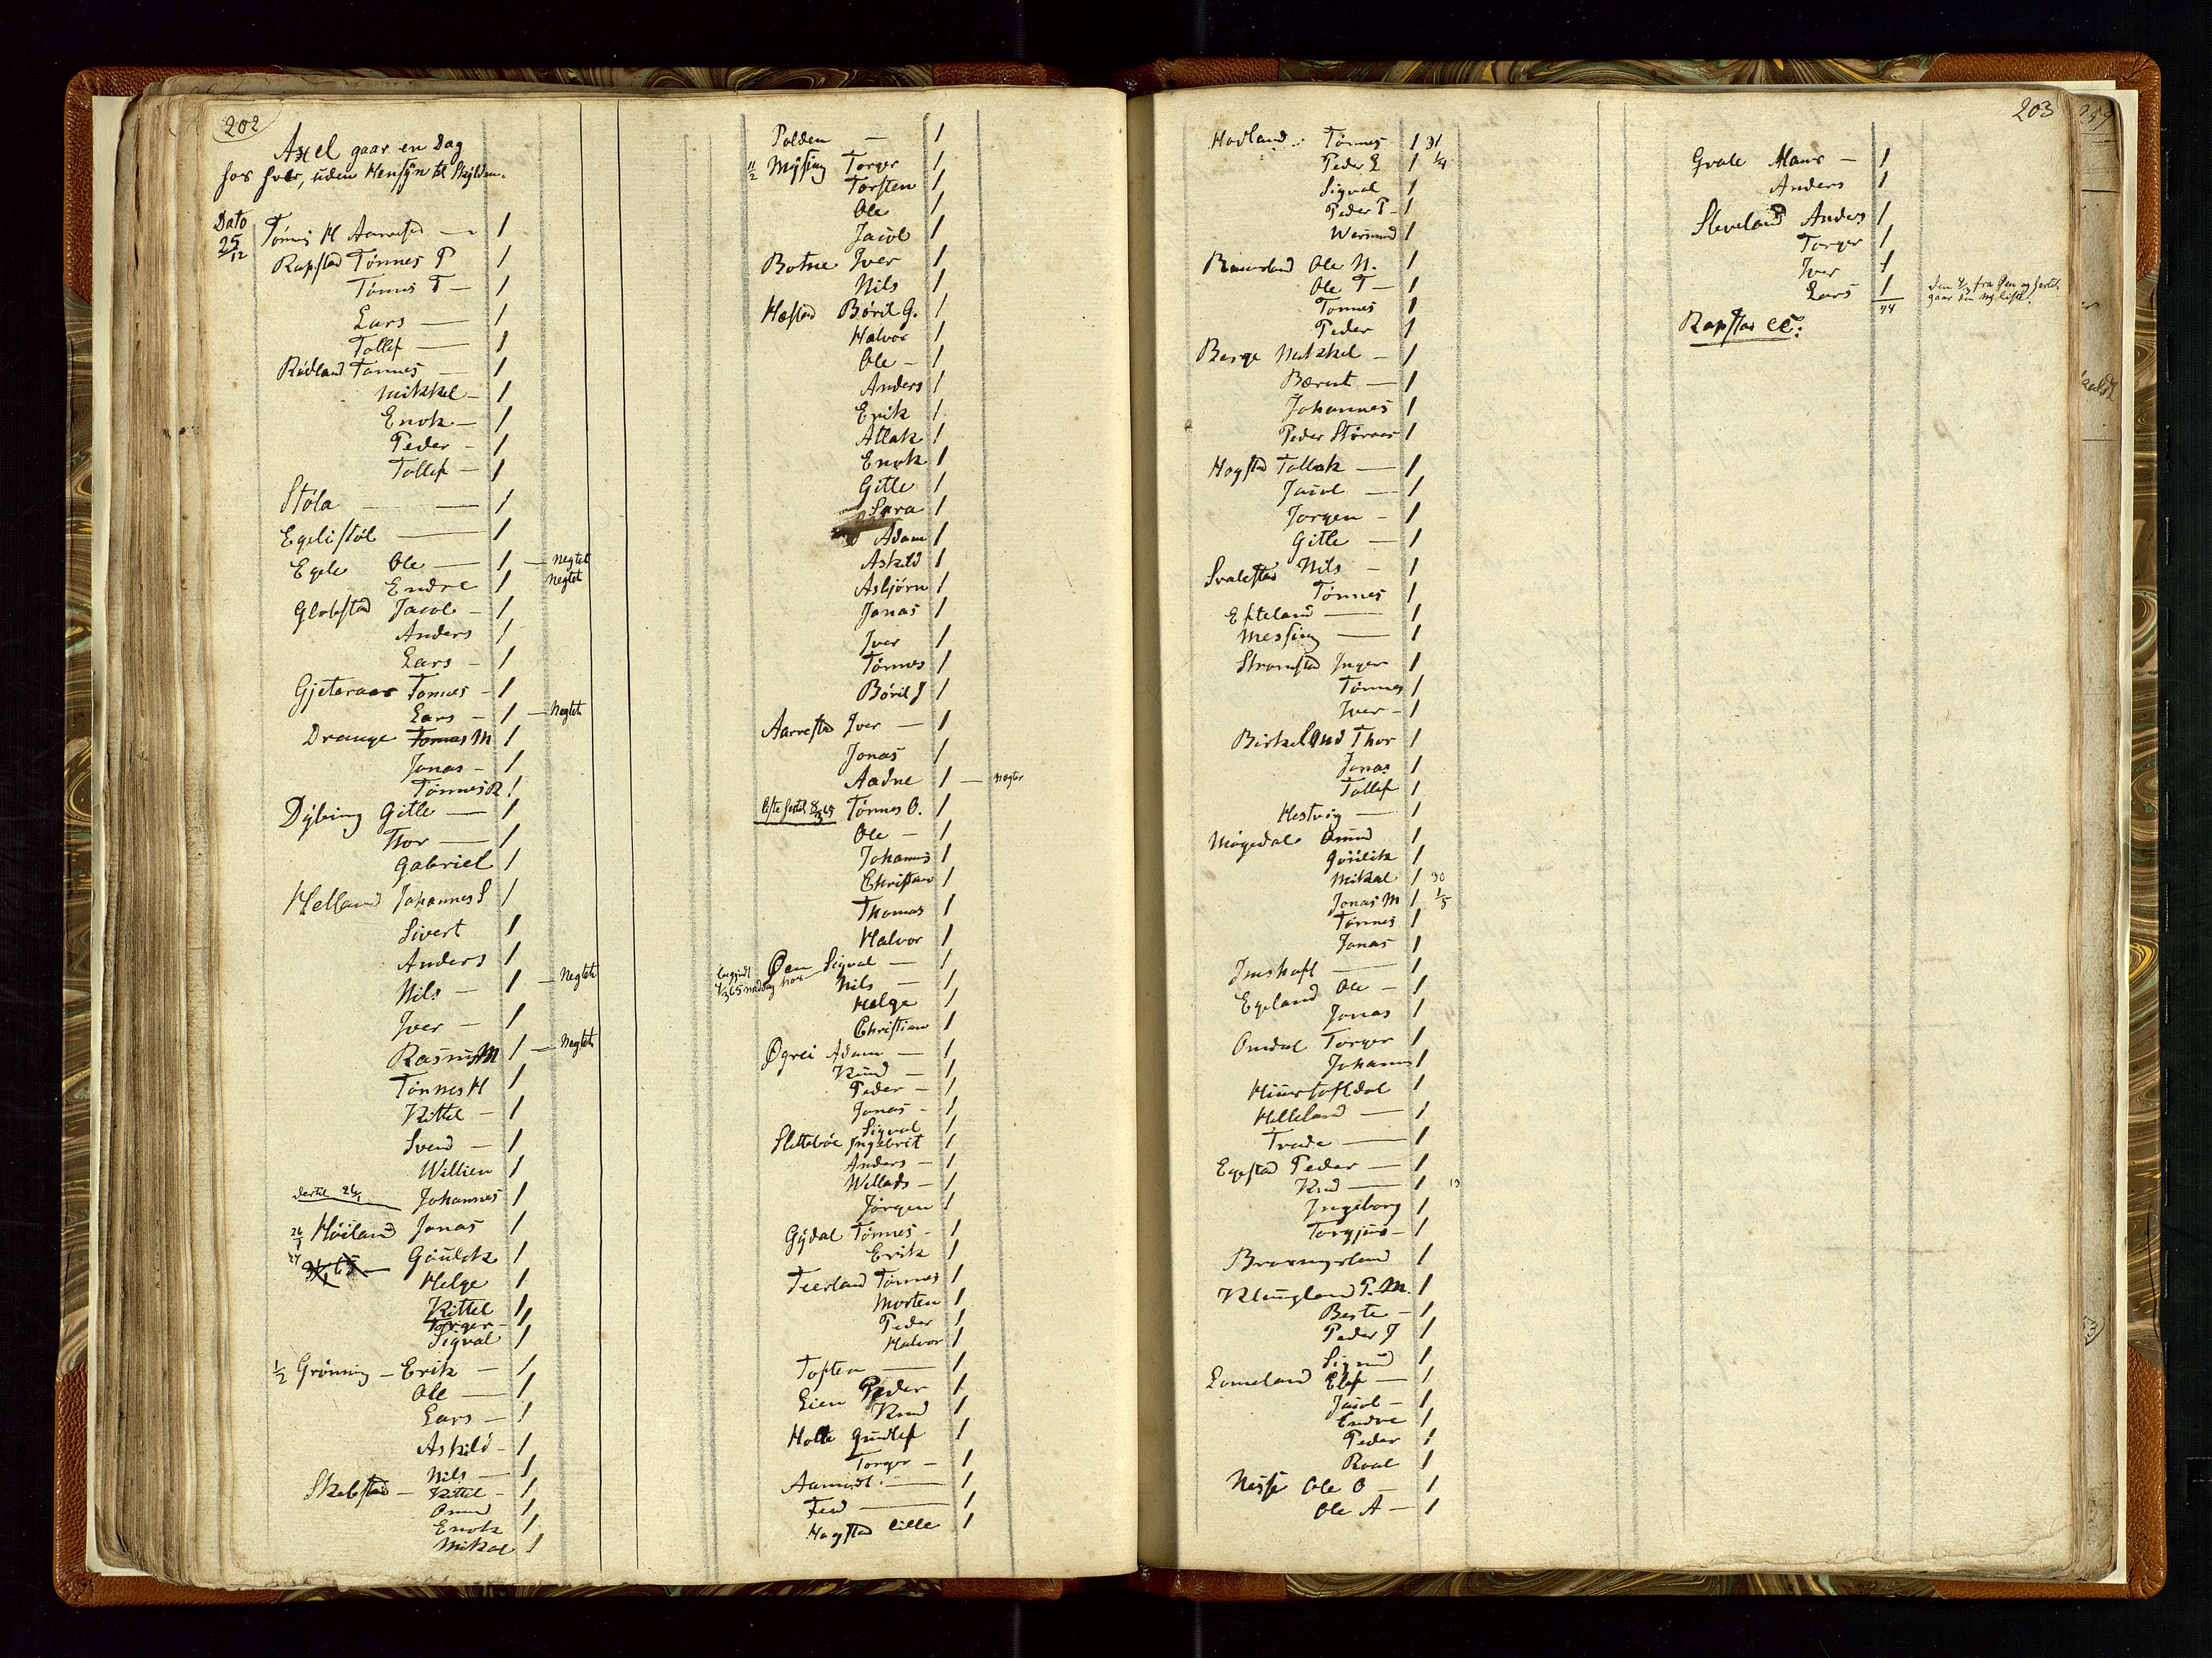 202
Axel gaar en Dag
for hver, uden Hensÿn til Skÿlden.
Dato
25/12 Tönnes H Aarrestad — 1
Rapstad Tönnes P 1
Tönnes T — 1
Lars — 1
Tollef — 1
Rødland Tönnes — 1
Mikkel — 1
Enok — 1
Peder — 1
Tollef — 1
Støla — 1
Egelistøl — 1
Egele Ole — 1 — Negtet
Endre 1 Negtet
Globstad Jacob — 1
Anders 1
Lars — 1
Gjeteraas Tönnes — 1
Lars — 1 — Negtet
Drange Tomas M 1
Jonas — 1
Tönnes R 1
Dÿbing Gitle — 1
Thor — 1
Gabriel 1
Helland Johannes S 1
Sivert 1
Anders 1
Nils — 1 — Negtet
Iver — 1
Rasmus M 1 — Negtet
Tönnes H 1
Kittel — 1
Svend — 1
Willien 1
dertil 26/1 Johannes 1
26/1 Høiland Jonas 1
27 Gaülek 1
Helge 1
Kittel 1
Torger — 1
Sigval 1
1/2 Grönning — Erik — 1
Ole — 1
Lars — 1
Askild — 1
Nils — 1
Skebstad — Kittel — 1
Omund 1
Enok 1
Mikal 1
Polden — 1
11/2 Mÿsing Torger 1
Torsten 1
Ole 1
Jacob 1
Botne Iver 1
Nils 1
Hæstad Böril G. 1
Halvor 1
Ole — 1
Anders 1
Erik 1
Atlak 1
Enok 1
Gitle 1
Sara 1
Adam 1
Askild 1
Asbjörn 1
Jonas 1
Iver 1
Tönnes 1
Böril J 1
Aarrestad Iver — 1
Jonas 1
Aadne 1 — Negter
8/3 65 Tönnes O. 1
Ole — 1
Johannes 1
Christian 1
Thomas 1
Halvor 1
Øen Sigval — 1
Nils — 1
Helge 1
Christian 1
Øgrei Adam — 1
Knud — 1
Peder — 1
Jonas — 1
Sigval 1
Sletteböe Ingebret 1
Anders — 1
Willads — 1
Jörgen 1
Gÿdal Tönnes — 1
Erik 1
Teerland Tönnes 1
Morten 1
Peder 1
Halvor 1
Toften — 1
Lien Peder 1
Knud 1
Holte Gundlef 1
Torger — 1
Aamodt — 1
Fed — 1
Hogstad lille 1
203
Hodland Tönnes 1 31
Peder E 1 1/4
Sigval 1
Peder P — 1
Wermund 1
Ole N. 1
Ole T — 1
Tönnes 1
Peder 1
Berge Mikkel — 1
Bærent — 1
Johannes 1
Peder Störaas 1
Hogstad Tollak — 1
Jacob — 1
Jorgen — 1
Gitle — 1
Svalestad Nils — 1
Tönnes 1
Efteland — 1
Messing — 1
Stromstad Inger 1
Tönnes 1
Iver — 1
Birkeland Thor 1
Jonas 1
Tollef 1
Hestvig — 1
Mögedal Omund 1
Gaülek 1
Mikal 1 30
Jonas M 1 1/5
Tönnes 1
Jonas 1
Imshaft — 1
Egeland Ole — 1
Jonas 1
Omdal Torger 1
Johannes 1
1
Helleland — 1
Tvede — 1
Egestad Peder — 1
Knud — 1
Ingeborg 1
Torgjus — 1
1
Klungland P. M. 1
Berte — 1
Peder J 1
Sigmund 1
Lomeland Elef — 1
Jacob — 1
Endre 1
Peder 1
Roal 1
Nesse Ole O — 1
Ole A — 1
Gvale Hans — 1
Anders 1
Sleveland Anders 1
Torger 1
Iver 1
Lars 1
Rapstad